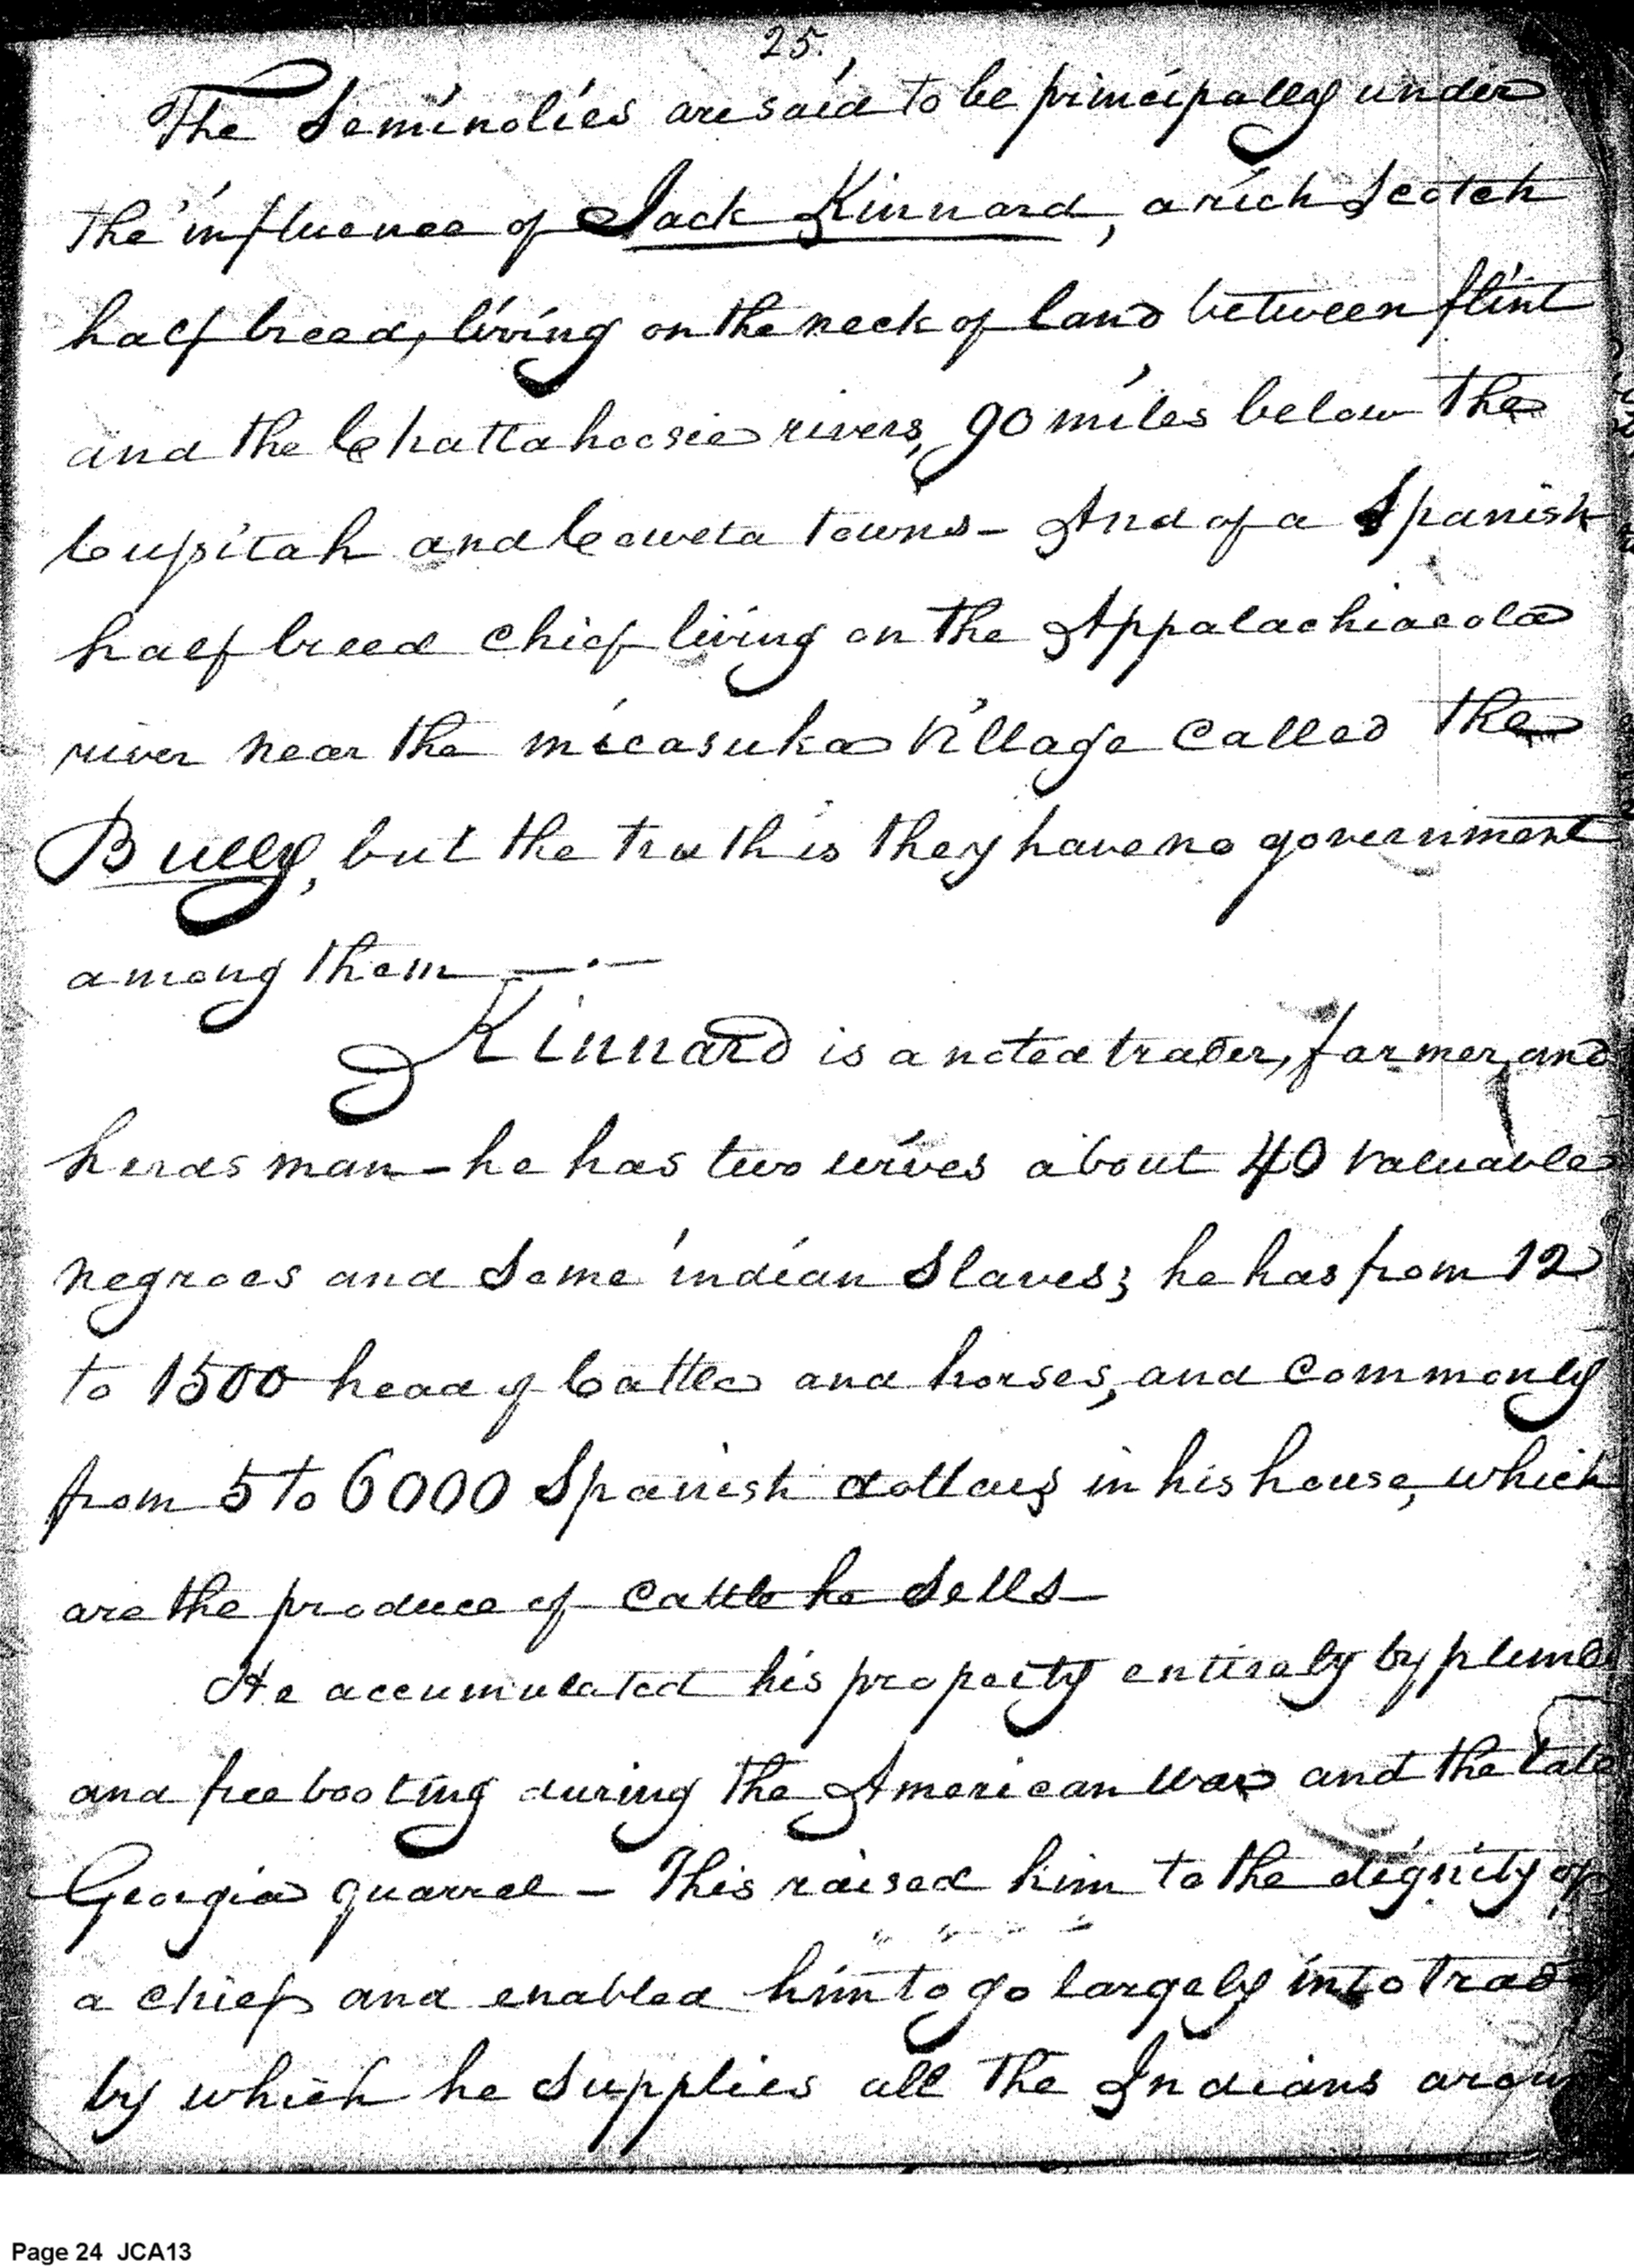 25.
The Seminolies are said to be principally under
the influence of Jack Kinnard, a rich Scotch
half breed, living on the neck of land between flint
and the Chattahoosie rivers, 90 miles below the
Cussitah and Coweta towns - And of a Spanish
half breed chief living on the Appalachiacola
river near the micasuka Village called the
Bully, but the truth is they have no government
among them —.—
Kinnard is a noted trader, farmer, and
herdsman - he has two wives about 40 valuable
negroes and some indian Slaves; he has from 12
to 1500 head of Cattle and horses, and commonly
from 5 to 6000 Spanish dollars in his house, which
are the produce of Cattle he sells -
He accumulated his property entirely by
and freebooting during the American war and the late
Georgia quarrel - This raised him to the dignity of
a chief and enabled him to go largely into
by which he supplies all the Indians
Page 24 JCA13